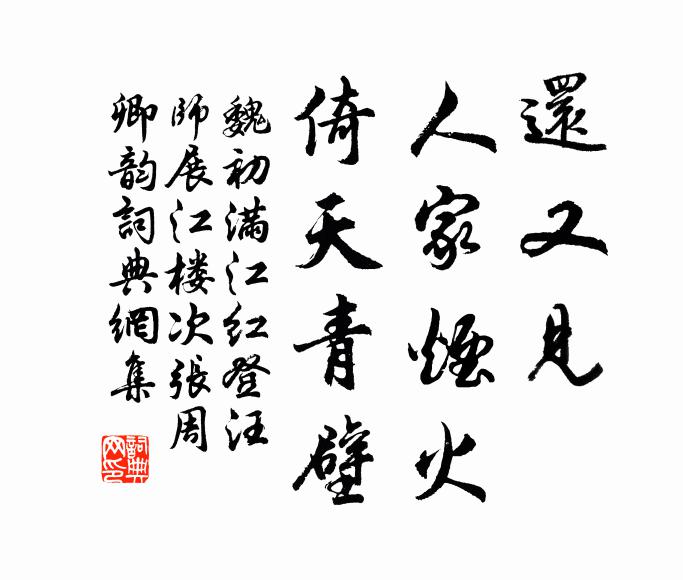 還又見
人家煙火
倚天青壁
魏初滿江紅登汪
師展江楼次張周
卿韵詞典網集
詞典
网印